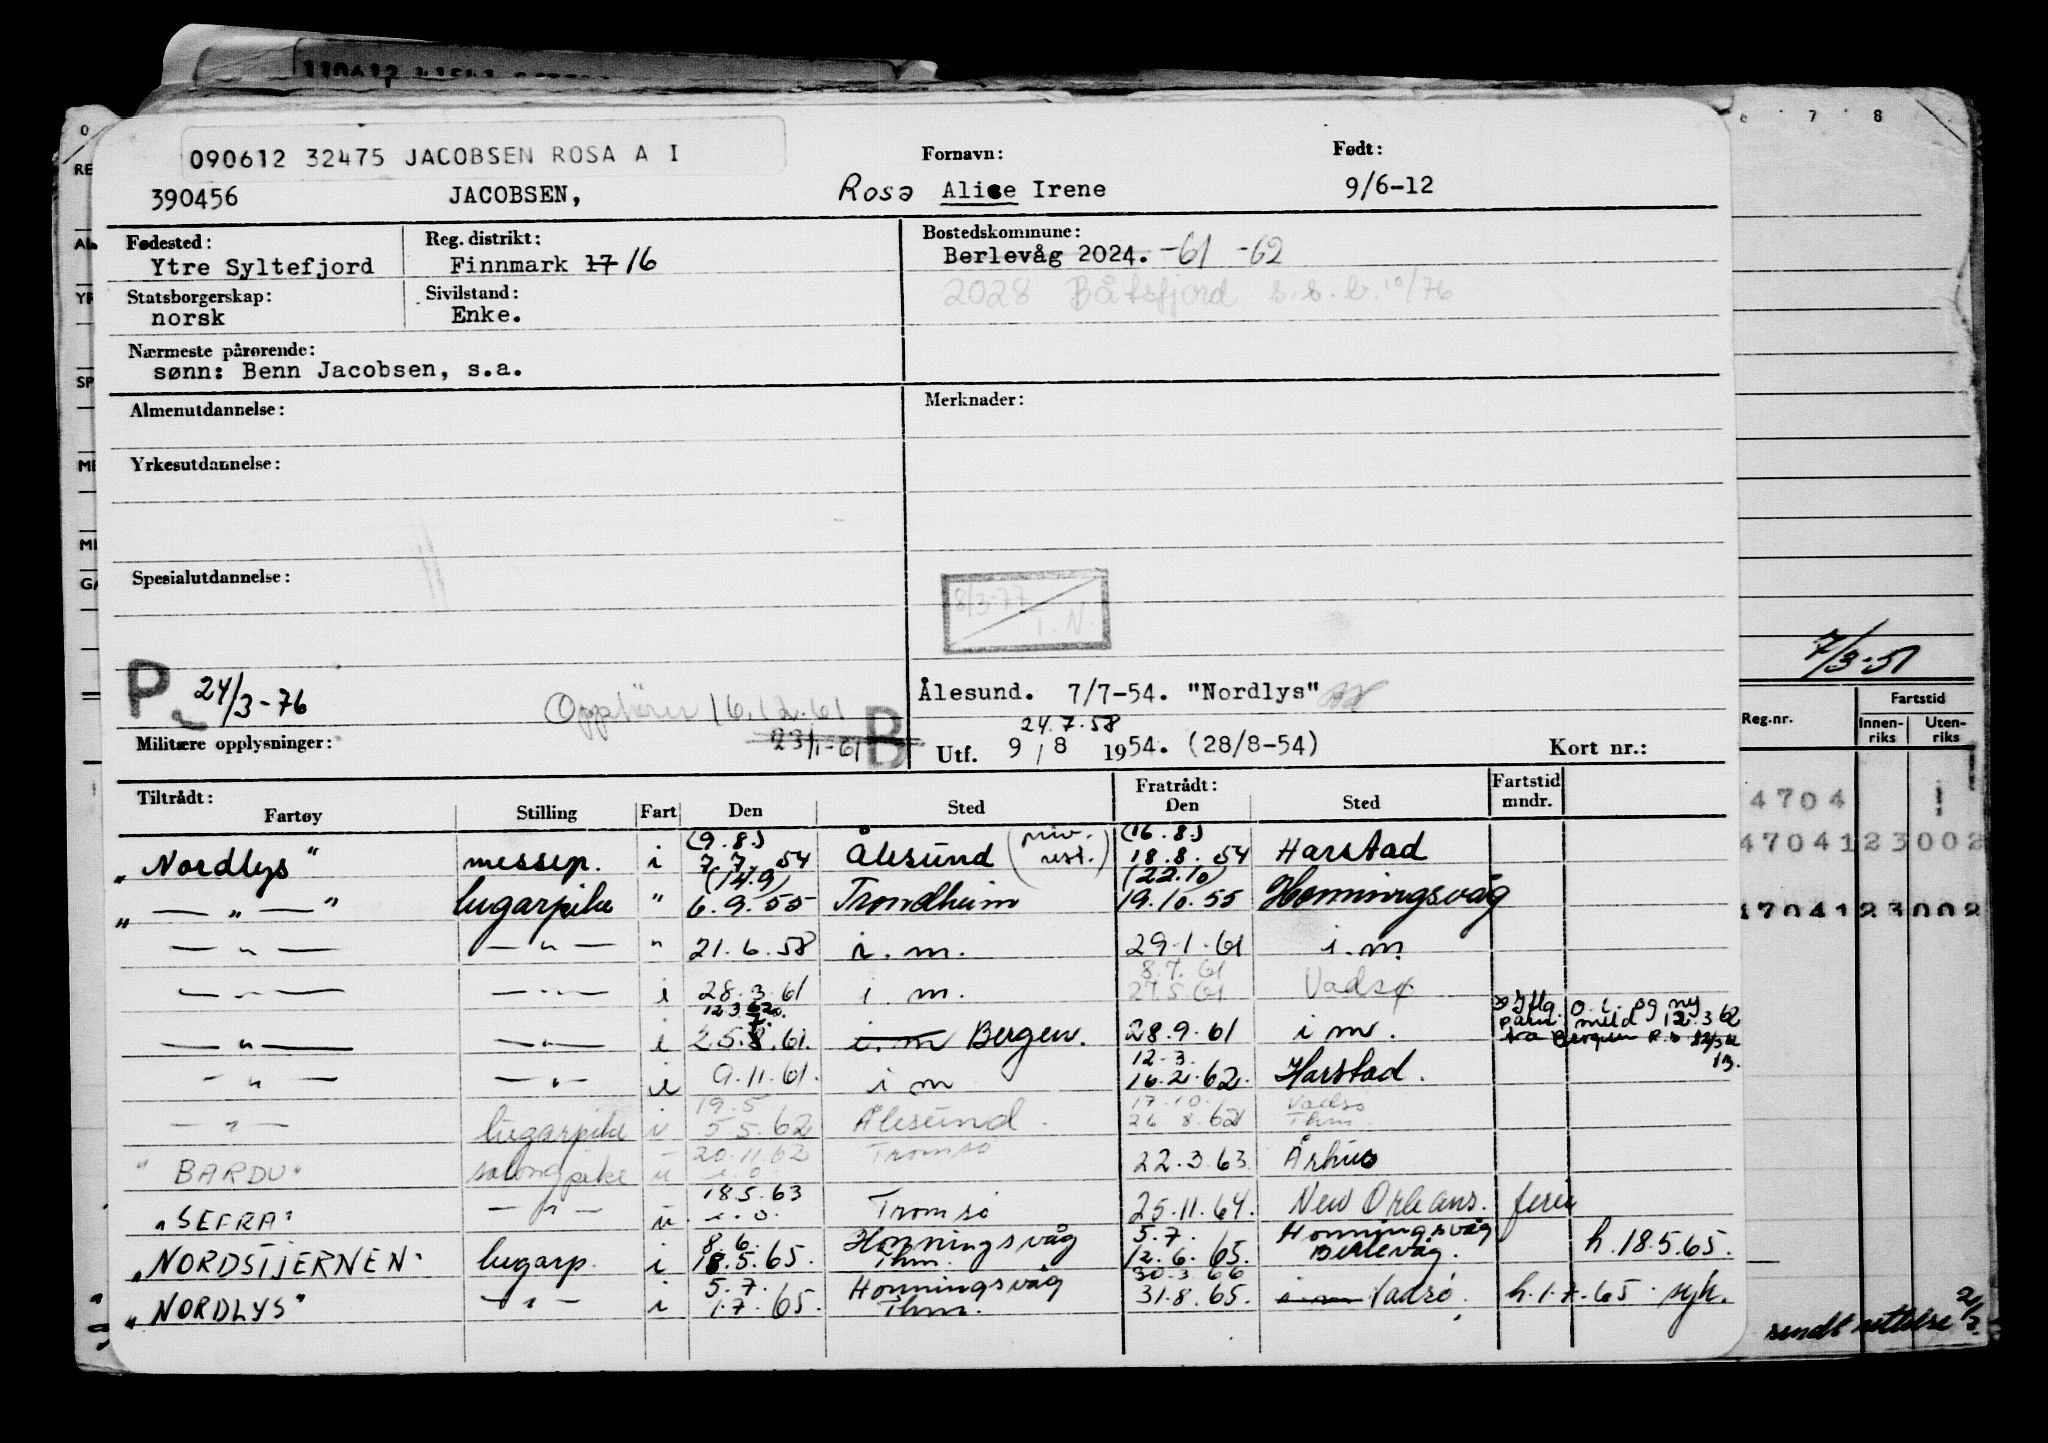 090612 32475 JACOBSEN ROSA A I
Fornavn: Født:
390456 JACOBSEN, Rosa Alice Irene 9/6-12
Fødested: Reg. distrikt: Bostedskommune:
Ytre Syltefjord Finnmark 17 16 Berlevåg 2024. -61 -62
Statsborgerskap: Sivilstand: 2028 Båtsfjord s.s.b. 10/76
norsk Enke.
Nærmeste pårørende:
sønn: Benn Jacobsen, s.a.
Almenutdannelse: Merknader:
Yrkesutdannelse:
Spesialutdannelse:
8/3-77
I. N.
P 24/3-76
Opphører 16.12.61
23/1-61 B
Ålesund. 7/7-54. "Nordlys"
24.7.58
Militære opplysninger: Utf. 9 / 8 1954. (28/8-54) Kort nr.:
Tiltrådt: Fratrådt: Fartstid
Fartøy Stilling Fart Den Sted Den Sted mndr.
(9.8.) (priv. (16.8.)
"Nordlys" messep. i 7.7.54 Ålesund rest.) 18.8.54 Harstad
(14.9) (22.10)
" — " — " lugarpike " 6.9.55 Trondheim 19.10.55 Honningsvåg
— " — — " — " 21.6.58 i.m. 29.1.61 i.m.
8.7.61
— " — — " — i 28.3.61 i m. 27.5.61 Vadsø
12.3.62
— " — — " — i 25.8.61. i.m Bergen. 28.9.61 i m.
12.3.
— " — — " — i 9.11.61. i m 16.2.62. Harstad.
19.5 17.10. Vadsø
— " — lugarpike i 5.5.62 Ålesund. 26 8.62 Thm.
20.11.62
"BARDU" salongpike u i.o. Tromsø 22.3.63. Århus
18.5.63
"SEFRA" — " — u. i.o. Tromsø 25.11.64. New Orleans. ferie
8.6. Honningsvåg 5.7. Honningsvåg
"NORDSTJERNEN" lugarp. i 18.5.65. Thm. 12.6.65. Berlevåg. h.18.5.65.
5.7. Honningsvåg 30.3 66
"NORDLYS" — " — i 1.7.65. Thm. 31.8.65. i m Vadsø. h.1.7.65. syk.
7 8
7/3-51
Reg.nr. Fartstid
Innen-
riks Uten-
riks
4704
4704123002
4704123002
sendt rettelse